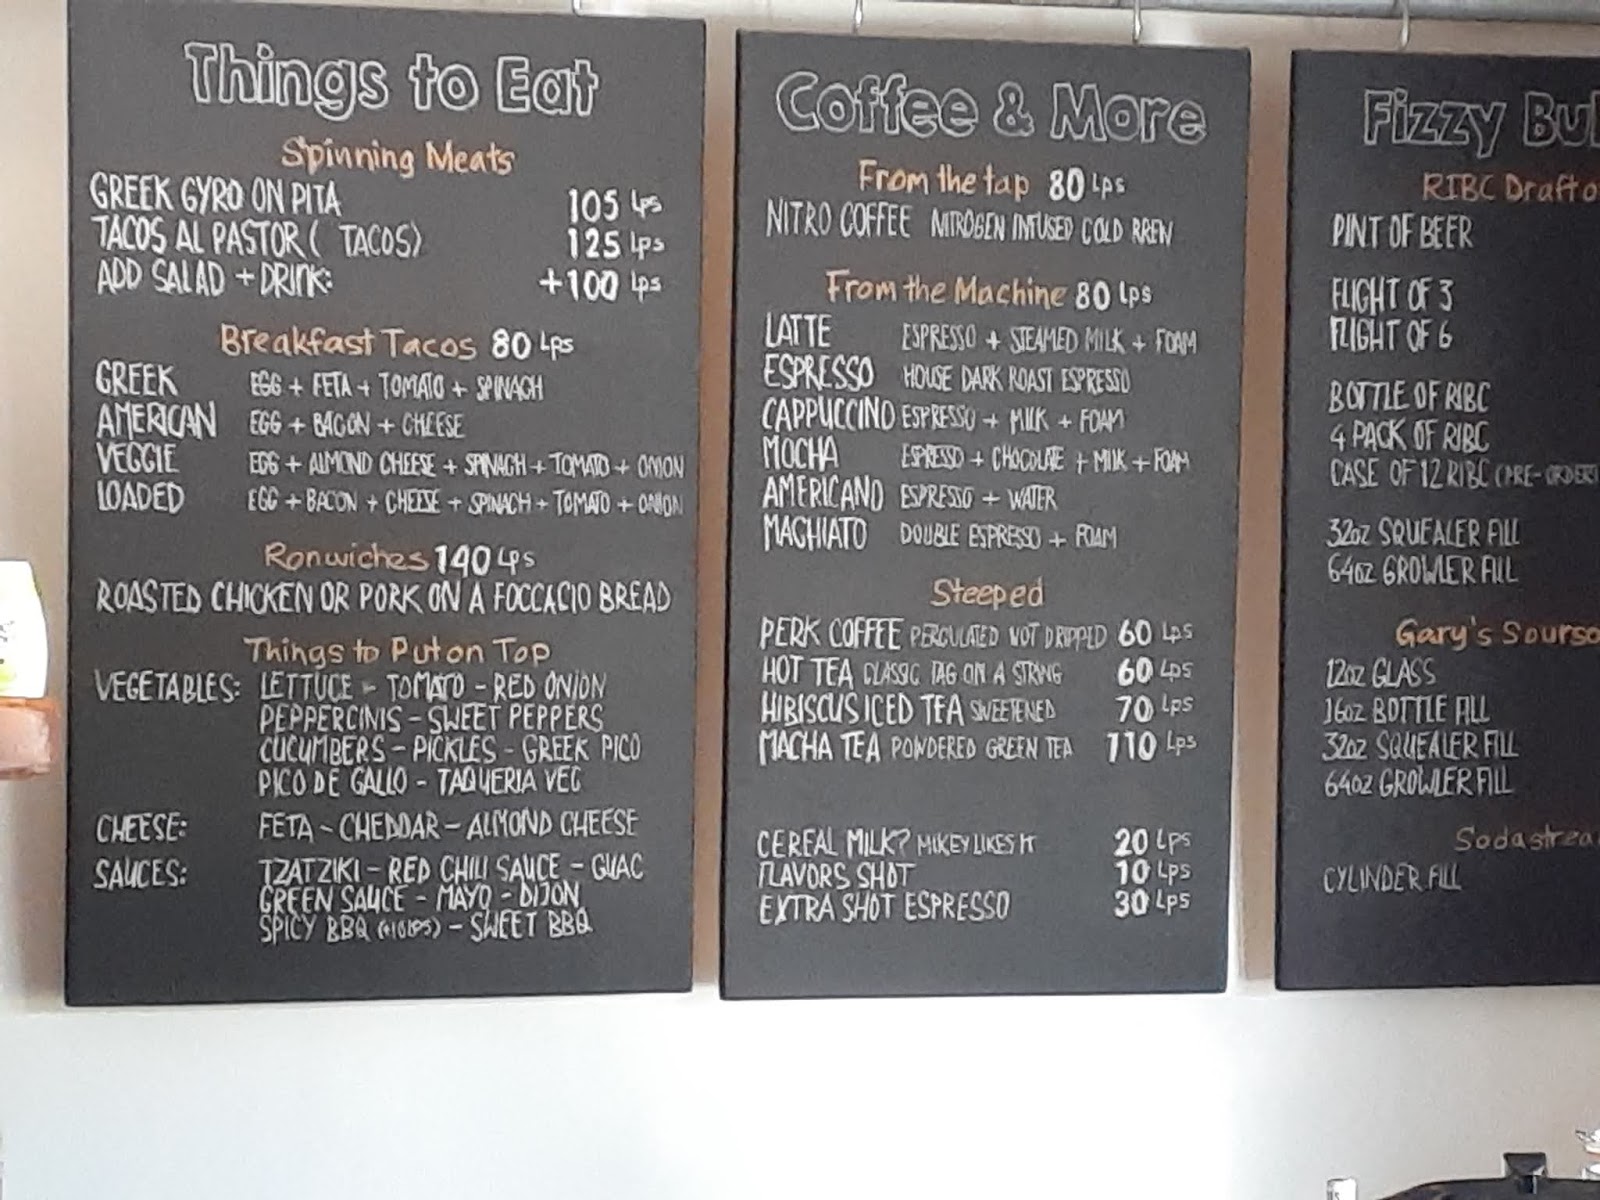 Things to Eat
Spinning Meats
GREEK GYRO ON PITA 105 Lps
TACOS AL PASTOR ( TACOS) 125 Lps
ADD SALAD + DRINK: +100 Lps
Breakfast Tacos 80 Lps
GREEK EGG + FETA + TOMATO + SPINACH
AMERICAN EGG + BACON + CHEESE
VEGGIE EGG + ALMOND CHEESE + SPINACH + TOMATO + ONION
LOADED EGG + BACON + CHEESE + SPINACH + TOMATO + ONION
Ronwiches 140 Lps
ROASTED CHICKEN OR PORK ON A FOCCACIO BREAD
Things to Put on Top
VEGETABLES: LETTUCE - TOMATO - RED ONION
PEPPERCINIS - SWEET PEPPERS
CUCUMBERS - PICKLES - GREEK PICO
PICO DE GALLO - TAQUERIA VEG
CHEESE: FETA - CHEDDAR - ALMOND CHEESE
SAUCES: TZATZIKI - RED CHILI SAUCE - GUAC
GREEN SAUCE - MAYO - DIJON
SPICY BBQ (+10LPS) - SWEET BBQ
Coffee & More
From the tap 80 Lps
NITRO COFFEE NITROGEN INFUSED COLD BREW
From the Machine 80 Lps
LATTE ESPRESSO + STEAMED MILK + FOAM
ESPRESSO HOUSE DARK ROAST ESPRESSO
CAPPUCCINO ESPRESSO + MILK + FOAM
MOCHA ESPRESSO + CHOCOLATE + MILK + FOAM
AMERICANO ESPRESSO + WATER
MACHIATO DOUBLE ESPRESSO + FOAM
Steeped
PERK COFFEE PERCULATED NOT DRIPPED 60 Lps
HOT TEA CLASSIC TAG ON A STRING 60 Lps
HIBISCUS ICED TEA SWEETENED 70 Lps
MACHA TEA POWDERED GREEN TEA 110 Lps
CEREAL MILK? MIKEY LIKES IT 20 Lps
FLAVORS SHOT 10 Lps
EXTRA SHOT ESPRESSO 30 Lps
Fizzy Bu
RIBC Draft o
PINT OF BEER
FLIGHT OF 3
FLIGHT OF 6
BOTTLE OF RIBC
4 PACK OF RIBC
CASE OF 12 RIBC (PRE-ORDER)
32oz SQUEALER FILL
64oz GROWLER FILL
Gary's Sourso
12oz GLASS
16oz BOTTLE FILL
32oz SQUEALER FILL
64oz GROWLER FILL
Sodastrea
CYLINDER FILL